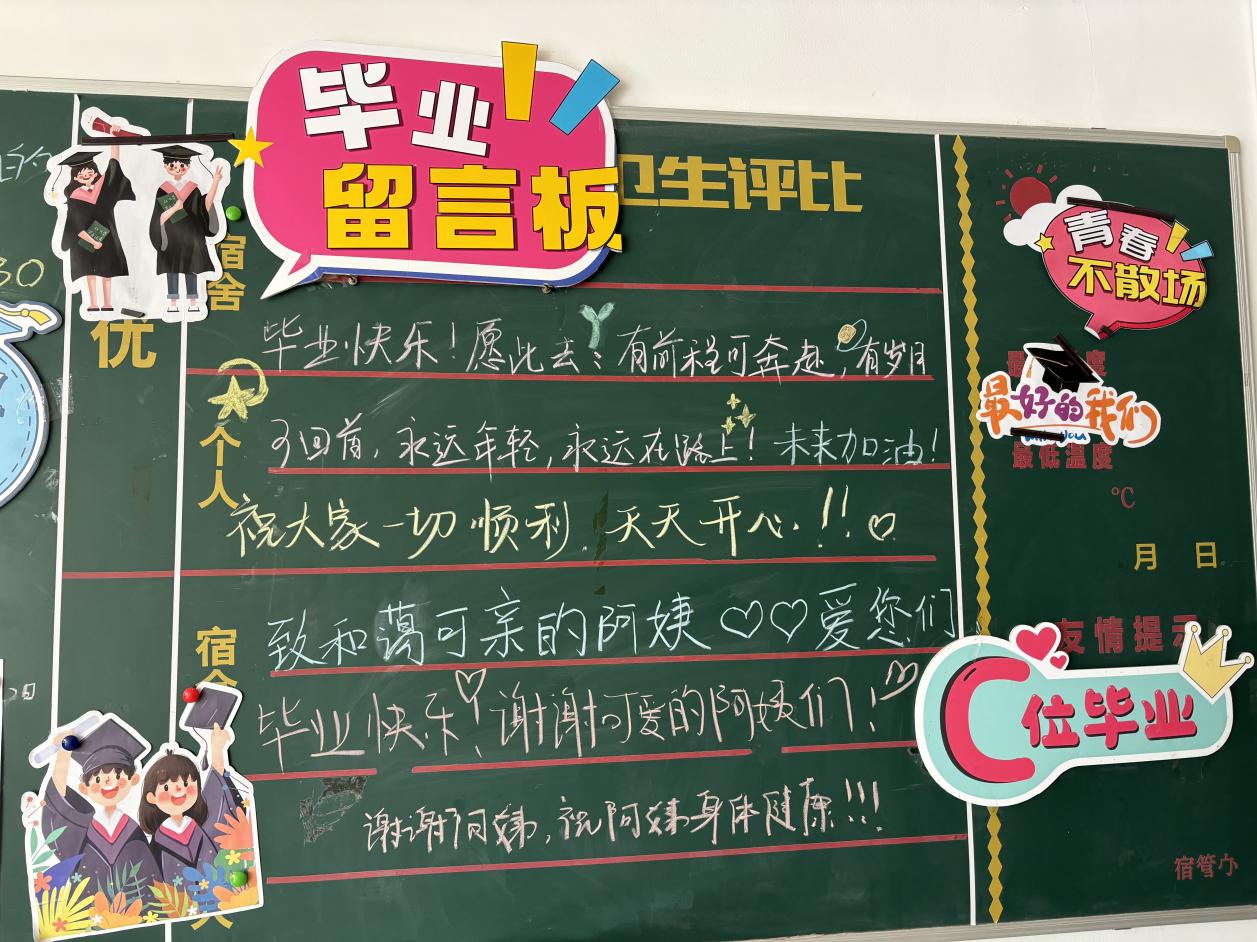 毕业
留言板
卫生评比
宿舍
优
个人
毕业快乐！愿此去：有前程可奔赴，有岁月
可回首，永远年轻，永远在路上！未来加油！
祝大家一切顺利，天天开心.!!
致和蔼可亲的阿姨爱您们
毕业快乐、谢谢可爱的阿姨们！
谢谢阿姨，祝阿姨身体健康!!!
青春
不散场
最好的我们
最低温度
℃
月 日
友情提示
C位毕业
宿管办